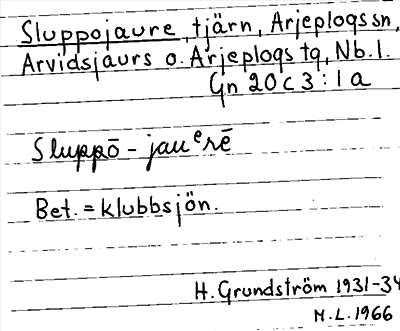 Sluppojaure, tjärn, Arjeplogs sn,
Arvidsjaurs o. Arjeplogs tg, Nb.l.
Gn 20 C 3 : 1 a
Sluppō - jauᵉrē
Bet. = klubbsjön.
H. Grundström 1931-34
M.L. 1966